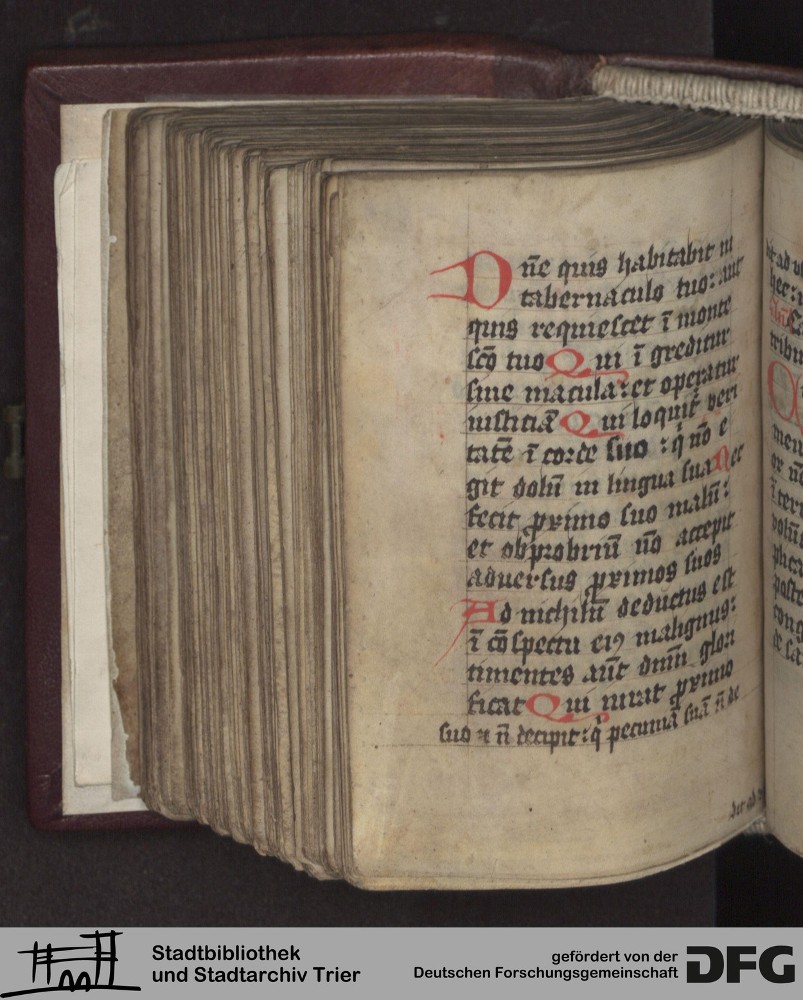 Dn̄e quis habitabit in
tabernaculo tuo: aut
quis requiescet ī monte
scō tuo Qui ī greditur
sine macula: et operatur
iusticiā Qui loquit᷑ veri
tatē ī corde suo : q̇ nō e
git dolū in lingua sua Nec
fecit proximo suo malū:
et obprobriū nō accepit
aduersus proximos suos
Ad nichilū deductus est
ī cōspectu eiꝰ malignus:
timentes aūt dnm̄ glori
ficat Qui iurat proximo
suo ⁊ n̄ decipit: q̇ pecuniā suā n̄ de
Stadtbibliothek
und Stadtarchiv Trier
gefördert von der
Deutschen Forschungsgemeinschaft
DFG